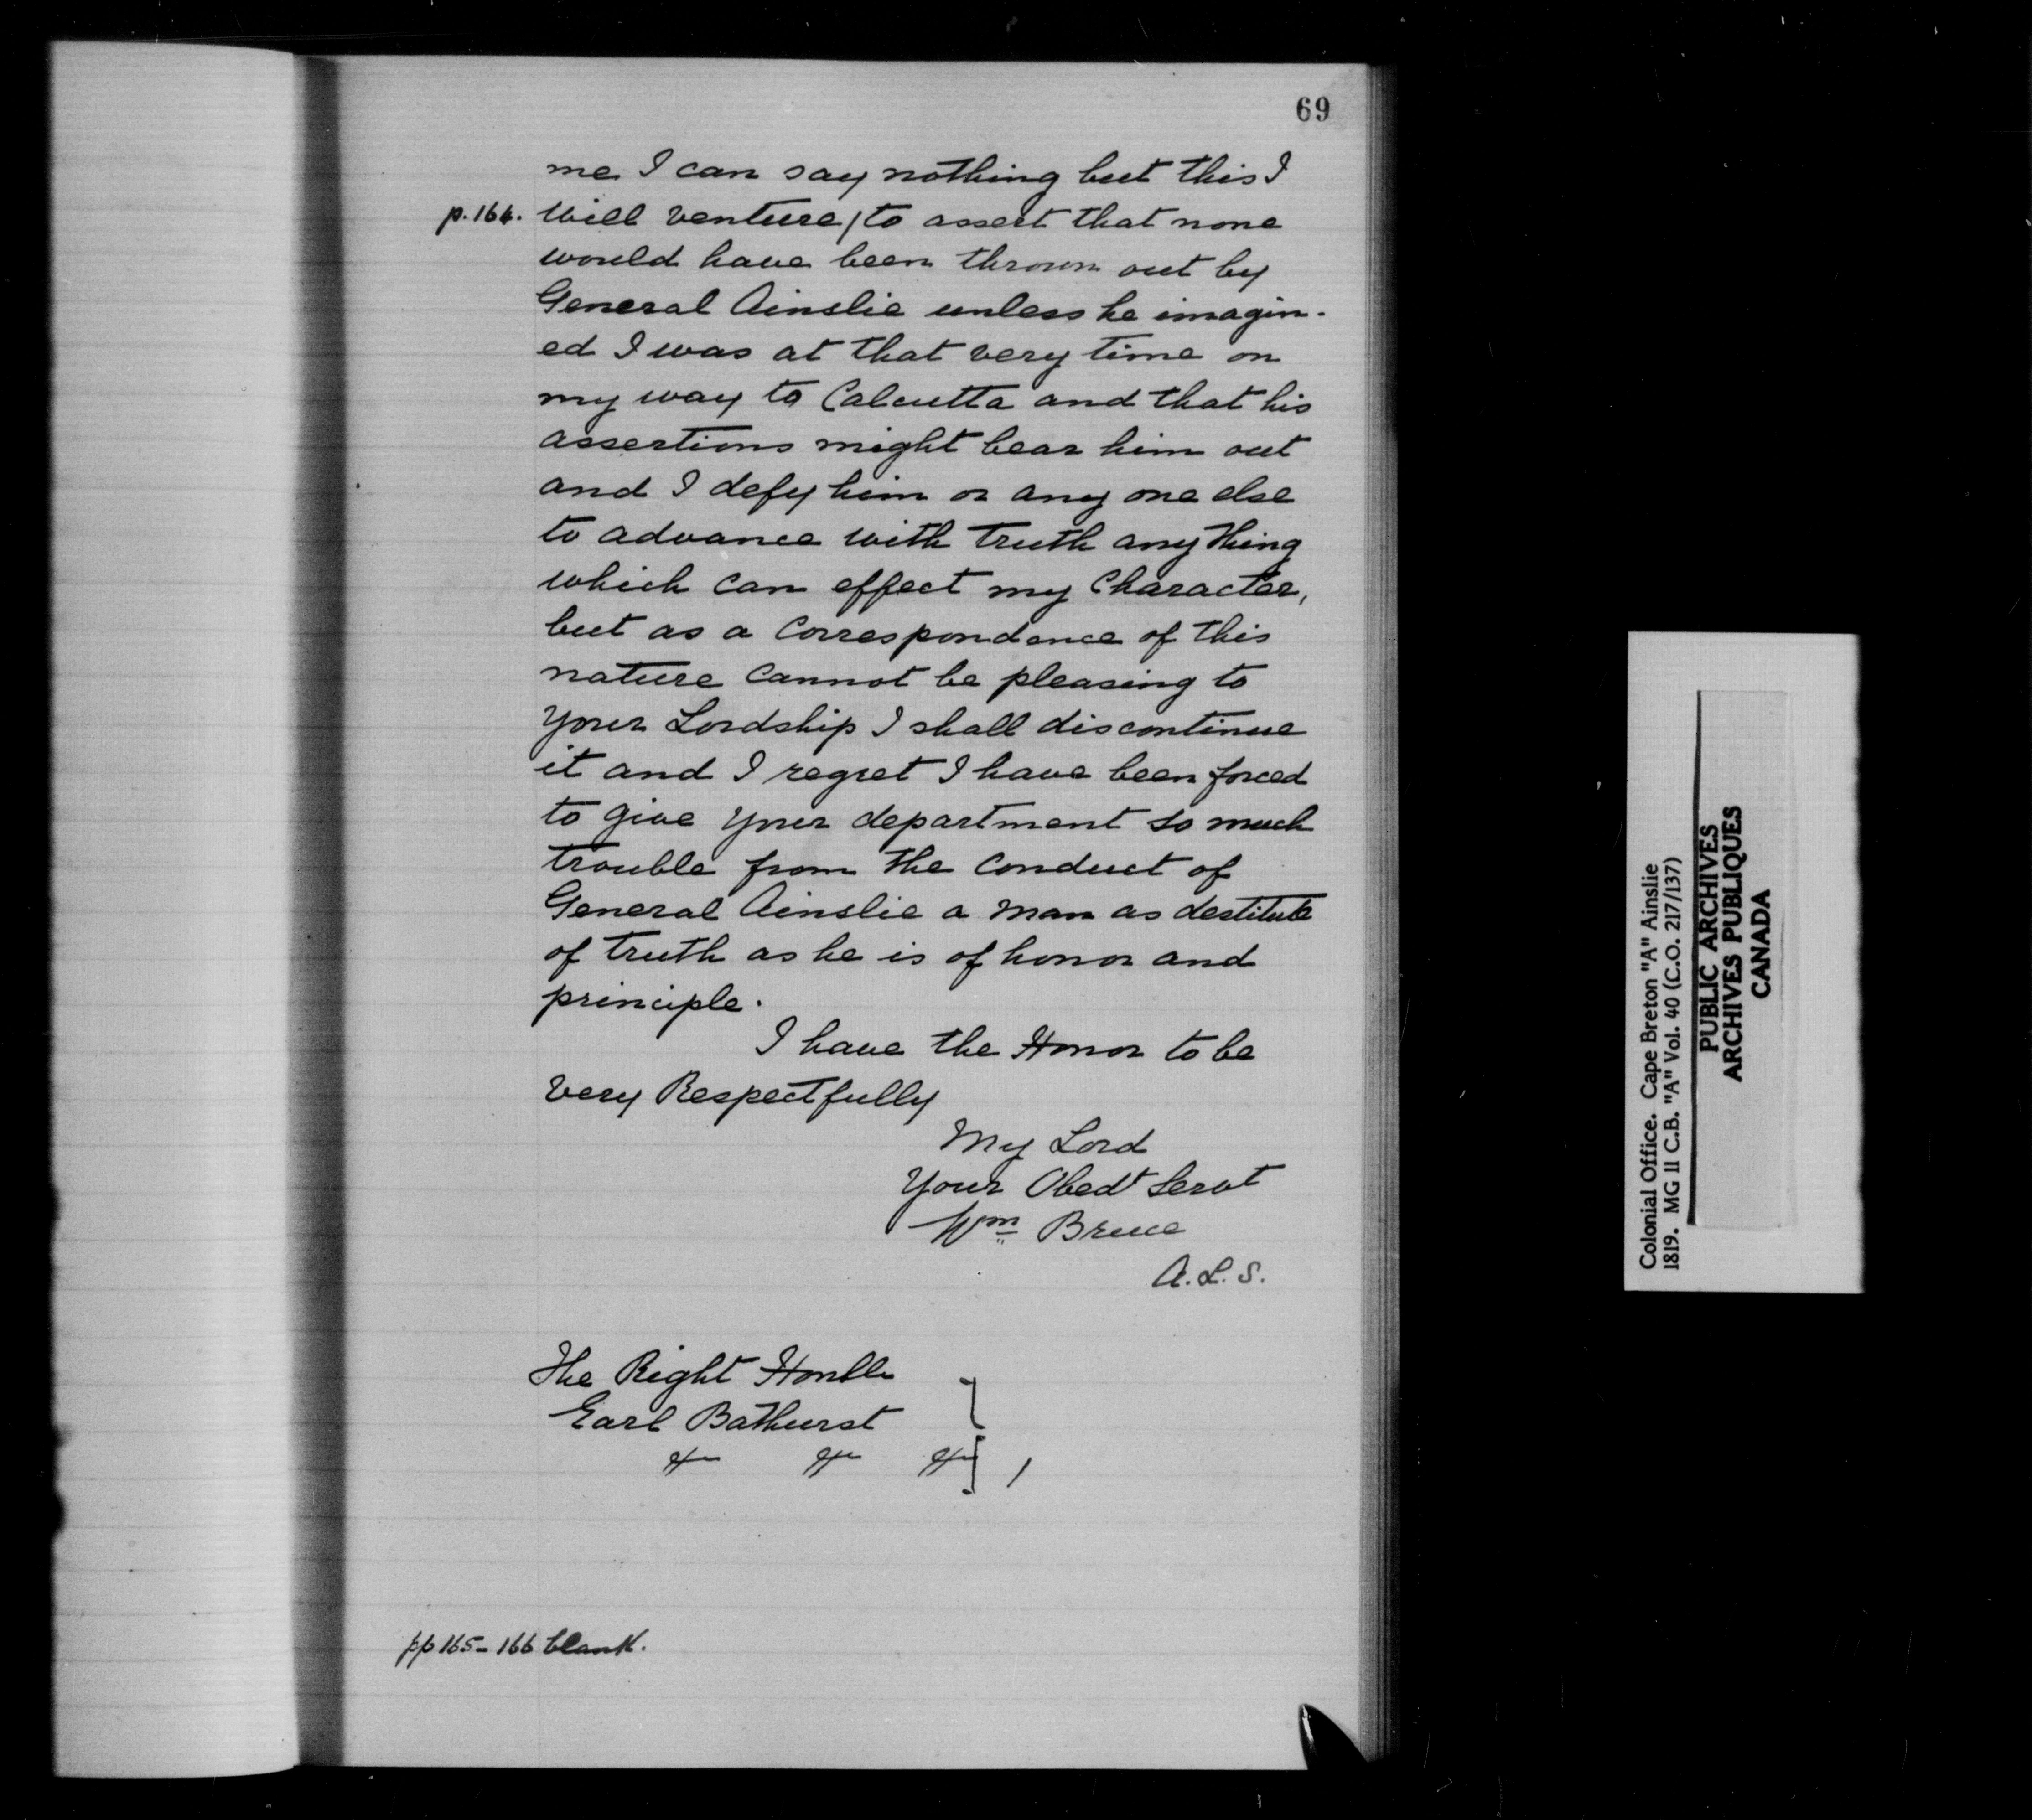 69
me I can say nothing but this I
p. 164. will venture / to assert that none
would have been thrown out by
General Ainslie unless he imagin-
ed I was at that very time on
my way to Calcutta and that his
assertions might bear him out
and I defy him or any one else
to advance with truth any thing
which can effect my Character,
but as a Correspondence of this
nature Cannot be pleasing to
Your Lordship I shall discontinue
it and I regret I have been forced
to give Your department so much
trouble from the Conduct of
General Ainslie a Man as destitute
of truth as he is of honor and
principle.
I have the Honor to be
Very Respectfully
My Lord
Your Obedt Servt
Wm Bruce
A. L. S.
The Right Honble
Earl Bathurst
&c &c &c
pp 165-166 blank.
Colonial Office. Cape Breton "A" Ainslie
1819. MG 11 C.B. "A" Vol. 40 (C.O. 217/137)
PUBLIC ARCHIVES
ARCHIVES PUBLIQUES
CANADA